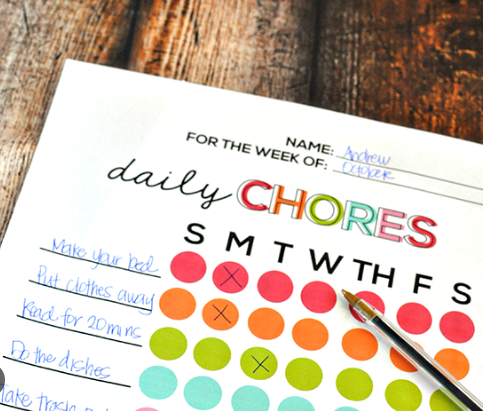 NAME: Andrew
FOR THE WEEK OF: October
daily CHORES
S M T W TH F S
Make your bed
Put clothes away
Read for 20 mins
Do the dishes
Make trash